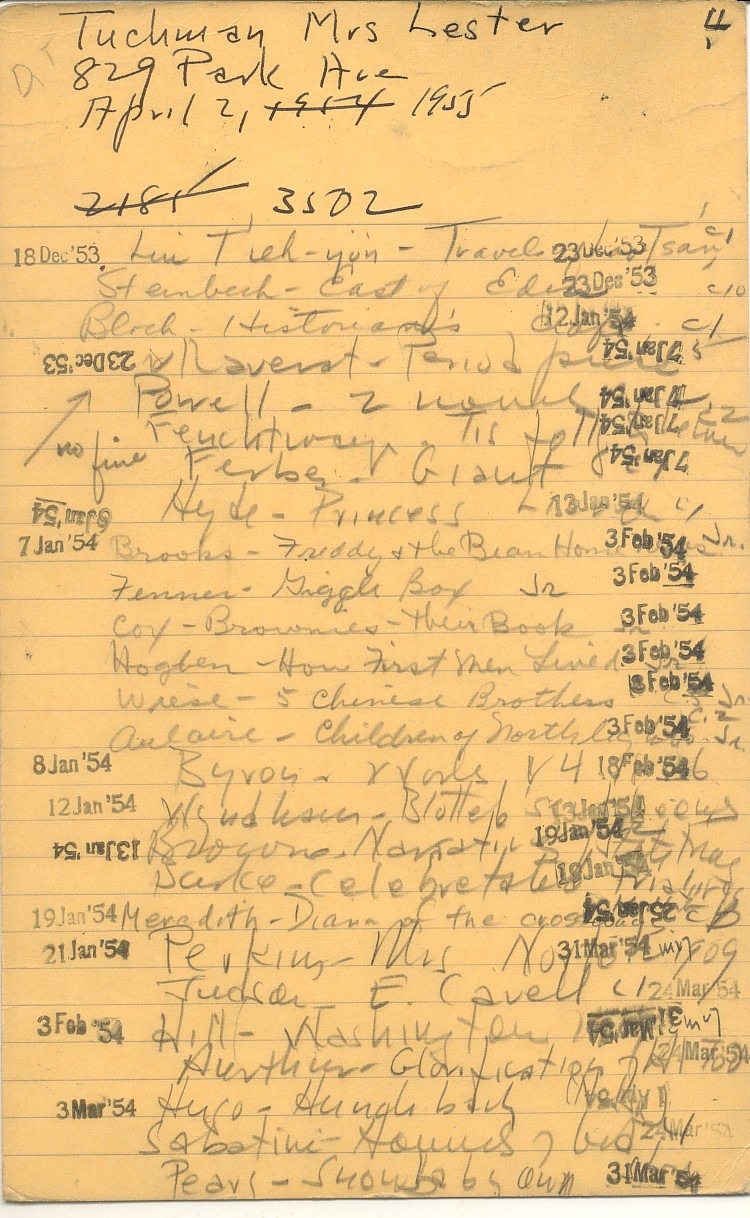 Tuchman Mrs Lester 4
829 Park Ave
April 2, 1954 1955
2185 3502
18 Dec '53 Liu T'ieh-yün - Travels Lao Ts'an 23 Dec '53 c1
Steinbeck - East of Eden 23 Dec '53 c10
Bloch - Historian's Craft 12 Jan '54 c1
23 Dec '53 Raverat - Period piece 7 Jan '54 c5
Powell - 2 novels 7 Jan '54 c2
Feuchtwanger - Tis folly 7 Jan '54
no fine Ferber - Giant 7 Jan '54
6 Jan '54 Hyde - Princess 13 Jan '54 c1
7 Jan '54 Brooks - Freddy & the Bean Home News Jr. 3 Feb '54
Fenner - Giggle Box Jr 3 Feb '54
Cox - Brownies - Their Book Jr 3 Feb '54
Hogben - How First Men Lived Jr 3 Feb '54
Wiese - 5 Chinese Brothers 3 Feb '54 Jr.
Aulaire - Children of Northlights 3 Feb '54 c.2 Jr.
8 Jan '54 Byron - Works V4 18 Feb '54
12 Jan '54 Wyndham - 13 Jan '54
13 Jan '54 Browne - Narrative 19 Jan '54
Burke - Celebrated Trials 18 Jan '54
19 Jan '54 Meredith - Diana of the crossways 25 Jan '54
21 Jan '54 Perkins - Mrs 31 Mar '54
Judson E. Cavell c1 24 Mar '54
3 Feb '54 Hill - Washington 31 Mar '54
Glorification of Al 24 Mar '54
3 Mar '54 Hugo - Hunchback 1 Apr '54
Sabatini - Hounds of God 24 Mar '54
Pears - Shorn by Own 31 Mar '54